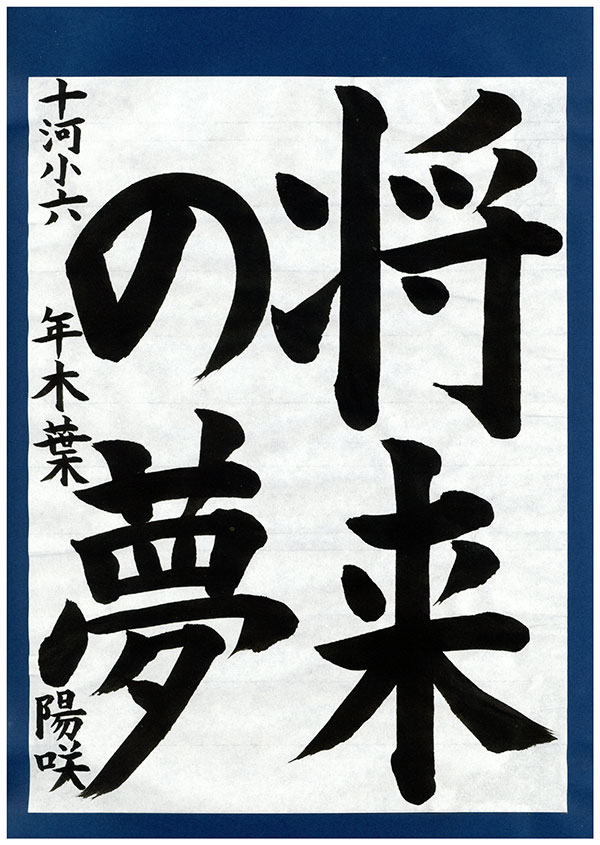 将来
の夢
十河小六年木葉陽咲